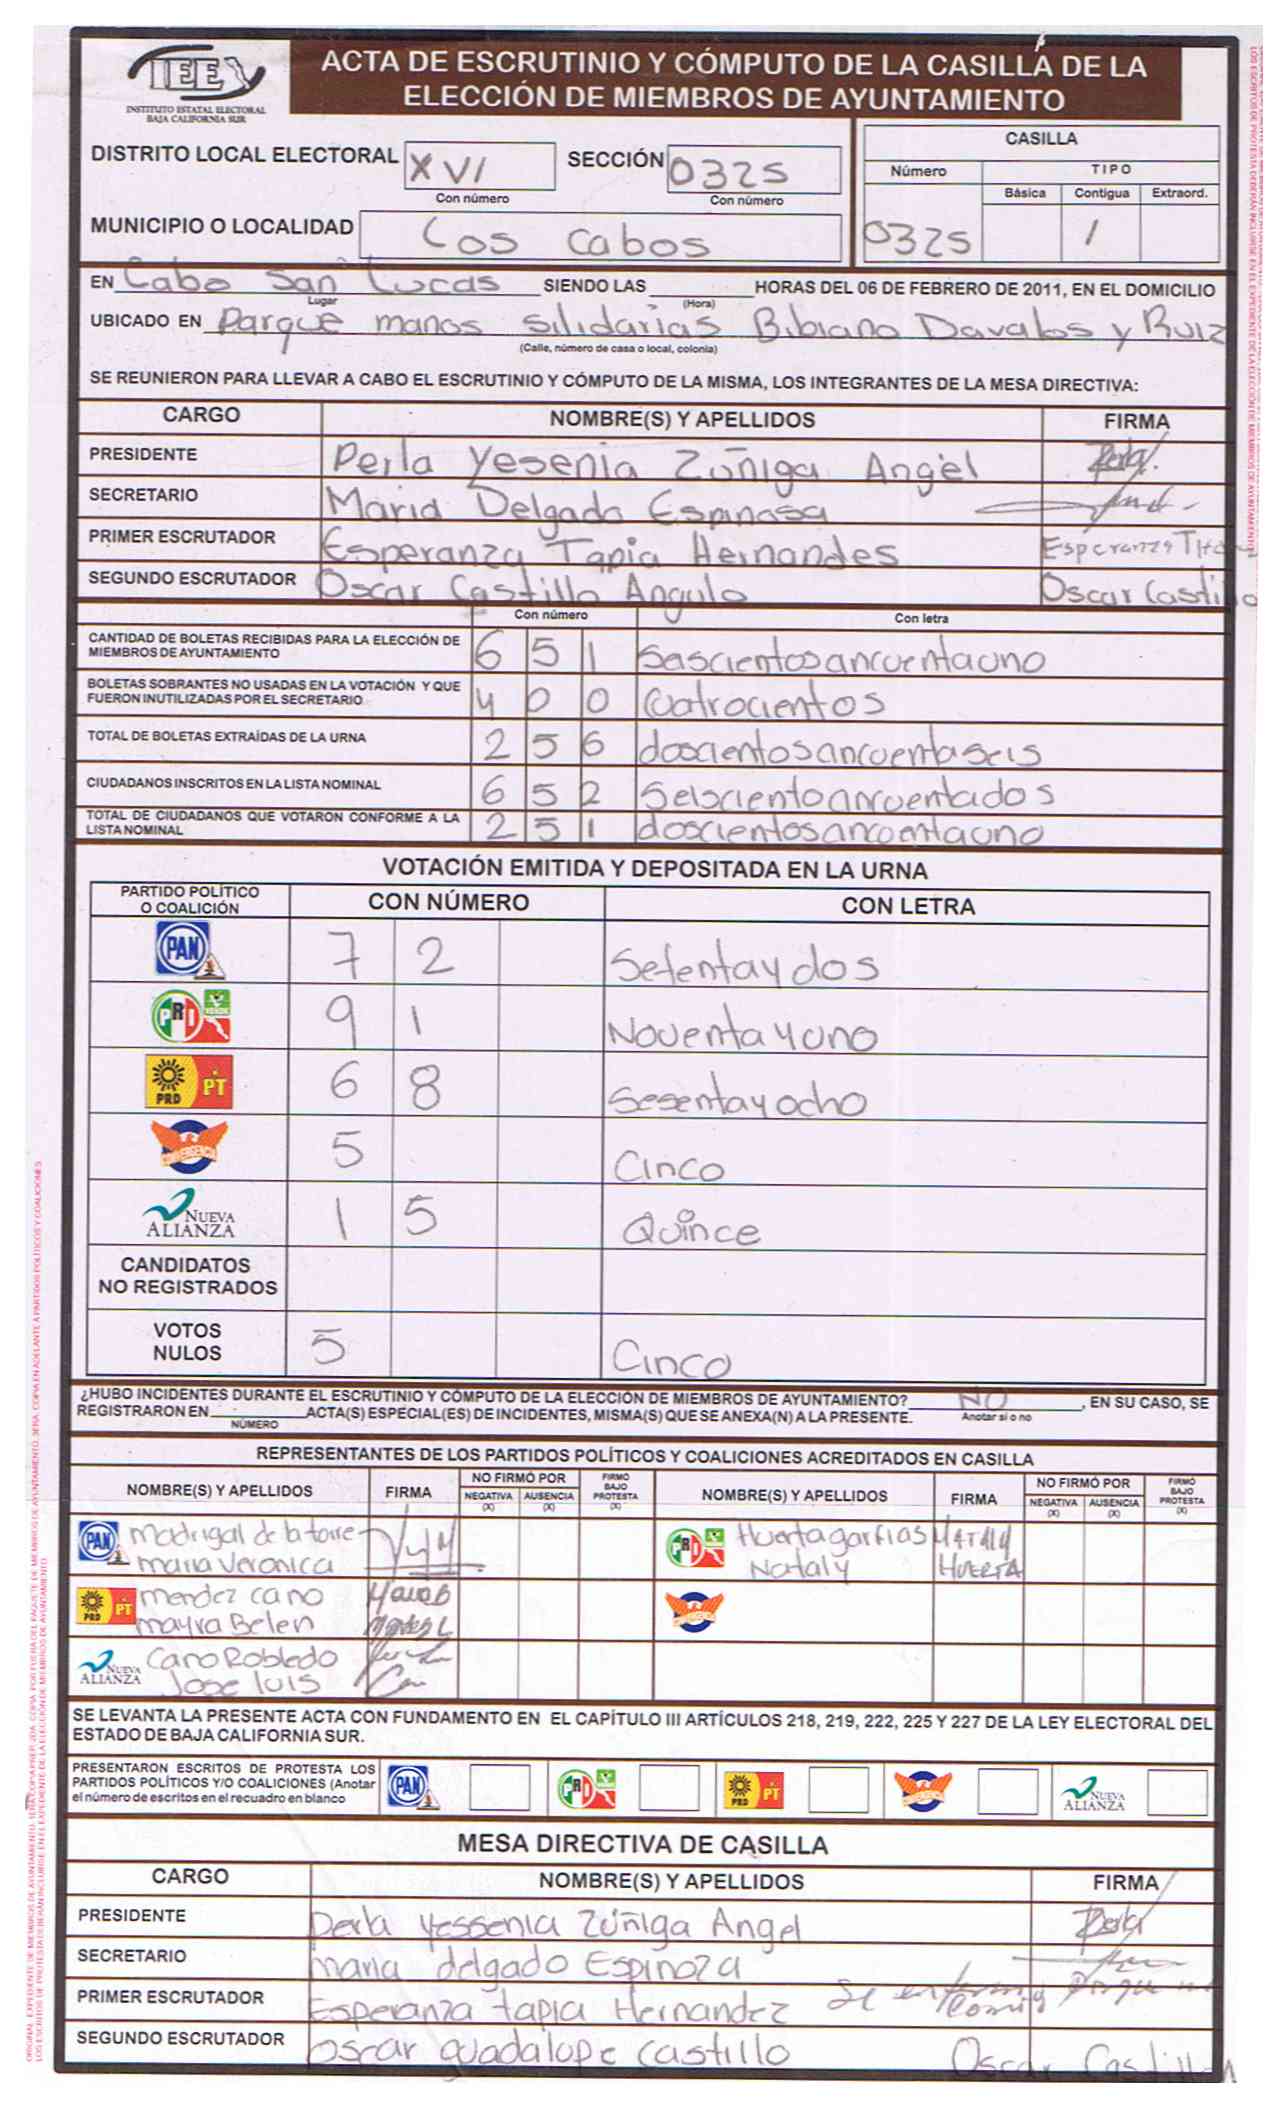 IEE
INSTITUTO ESTATAL ELECTORAL
BAJA CALIFORNIA SUR
ACTA DE ESCRUTINIO Y CÓMPUTO DE LA CASILLA DE LA
ELECCIÓN DE MIEMBROS DE AYUNTAMIENTO
DISTRITO LOCAL ELECTORAL XVI SECCIÓN 0325
Con número Con número
MUNICIPIO O LOCALIDAD Los Cabos
CASILLA
Número TIPO
Básica Contigua Extraord.
0325 1
EN Cabo San Lucas SIENDO LAS HORAS DEL 06 DE FEBRERO DE 2011, EN EL DOMICILIO
Lugar (Hora)
UBICADO EN Parque manos silidarias Bibiano Davalos y Ruiz
(Calle, número de casa o local, colonia)
SE REUNIERON PARA LLEVAR A CABO EL ESCRUTINIO Y CÓMPUTO DE LA MISMA, LOS INTEGRANTES DE LA MESA DIRECTIVA:
CARGO NOMBRE(S) Y APELLIDOS FIRMA
PRESIDENTE Perla Yesenia Zúñiga Angel Perla
SECRETARIO Maria Delgado Espinosa
PRIMER ESCRUTADOR Esperanza Tapia Hernandes Esperanza
SEGUNDO ESCRUTADOR Oscar Castillo Angulo Oscar Castillo
Con número Con letra
CANTIDAD DE BOLETAS RECIBIDAS PARA LA ELECCIÓN DE
MIEMBROS DE AYUNTAMIENTO 6 5 1 Sascientosancuentauno
BOLETAS SOBRANTES NO USADAS EN LA VOTACIÓN Y QUE
FUERON INUTILIZADAS POR EL SECRETARIO 4 0 0 Cuatrocientos
TOTAL DE BOLETAS EXTRAÍDAS DE LA URNA 2 5 6 doscientosancuentaseis
CIUDADANOS INSCRITOS EN LA LISTA NOMINAL 6 5 2 Seiscientoancuentados
TOTAL DE CIUDADANOS QUE VOTARON CONFORME A LA
LISTA NOMINAL 2 5 1 doscientosancuentauno
VOTACIÓN EMITIDA Y DEPOSITADA EN LA URNA
PARTIDO POLÍTICO
O COALICIÓN CON NÚMERO CON LETRA
PAN 7 2 Setentaydos
PRI VERDE 9 1 Noventayuno
PRD PT 6 8 Sesentayocho
CONVERGENCIA 5 Cinco
NUEVA ALIANZA 1 5 Quince
CANDIDATOS
NO REGISTRADOS
VOTOS
NULOS 5 Cinco
¿HUBO INCIDENTES DURANTE EL ESCRUTINIO Y CÓMPUTO DE LA ELECCIÓN DE MIEMBROS DE AYUNTAMIENTO? NO , EN SU CASO, SE
REGISTRARON EN ACTA(S) ESPECIAL(ES) DE INCIDENTES, MISMA(S) QUE SE ANEXA(N) A LA PRESENTE. Anotar sí o no
NÚMERO
REPRESENTANTES DE LOS PARTIDOS POLÍTICOS Y COALICIONES ACREDITADOS EN CASILLA
NOMBRE(S) Y APELLIDOS FIRMA NO FIRMÓ POR NEGATIVA (X) AUSENCIA (X) FIRMÓ BAJO PROTESTA (X) NOMBRE(S) Y APELLIDOS FIRMA NO FIRMÓ POR NEGATIVA (X) AUSENCIA (X) FIRMÓ BAJO PROTESTA (X)
PAN madrigal de la torre PRI Huerta garfias NATALY
maria Veronica Nataly HUERTA
PRD PT mendez cano
mayra Belen
NUEVA ALIANZA Cano Robledo
Jose luis
SE LEVANTA LA PRESENTE ACTA CON FUNDAMENTO EN EL CAPÍTULO III ARTÍCULOS 218, 219, 222, 225 Y 227 DE LA LEY ELECTORAL DEL
ESTADO DE BAJA CALIFORNIA SUR.
PRESENTARON ESCRITOS DE PROTESTA LOS
PARTIDOS POLÍTICOS Y/O COALICIONES (Anotar
el número de escritos en el recuadro en blanco
PAN PRI PRD PT NUEVA ALIANZA
MESA DIRECTIVA DE CASILLA
CARGO NOMBRE(S) Y APELLIDOS FIRMA
PRESIDENTE Perla Yessenia Zúñiga Angel Perla
SECRETARIO maria delgado Espinoza
PRIMER ESCRUTADOR Esperanza tapia Hernandez Se enfermo porque no
comio
SEGUNDO ESCRUTADOR oscar guadalupe castillo Oscar Castillo